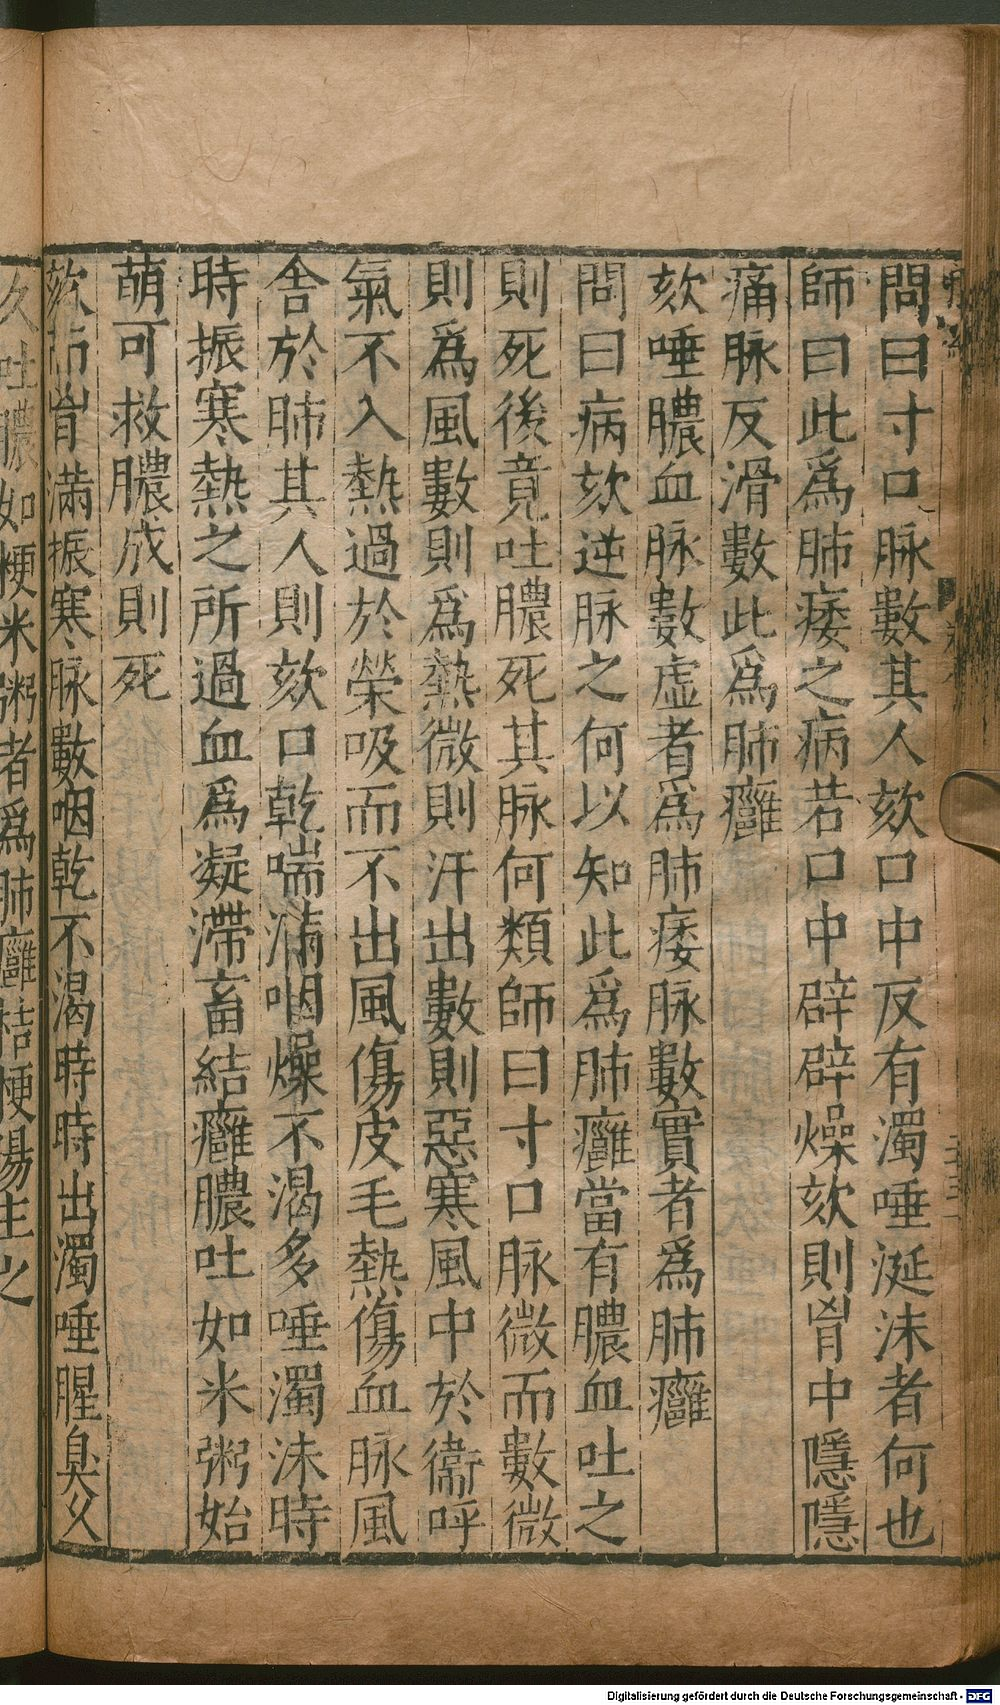 問曰寸口脉數其人欬口中反有濁唾涎沫者何也
師曰此爲肺痿之病若口中辟辟燥欬則胷中隱隱
痛脉反滑數此爲肺癰
欬唾膿血脉數虛者爲肺痿脉數實者爲肺癰
問曰病欬逆脉之何以知此爲肺癰當有膿血吐之
則死後竟吐膿死其脉何類師曰寸口脉微而數微
則爲風數則爲熱微則汗出數則惡寒風中於衞呼
氣不入熱過於榮吸而不出風傷皮毛熱傷血脉風
舍於肺其人則欬口乾喘滿咽燥不渴多唾濁沫時
時振寒熱之所過血爲凝滯畜結癰膿吐如米粥始
萌可救膿成則死
欬而胷滿振寒脉數咽乾不渴時時出濁唾腥臭久
久吐膿如粳米粥者爲肺癰桔梗湯主之
Digitalisierung gefördert durch die Deutsche Forschungsgemeinschaft - DFG